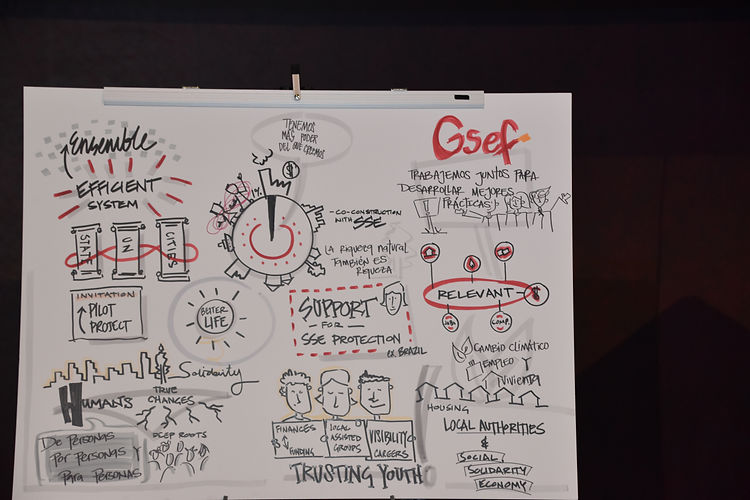 Ensemble
EFFICIENT
SYSTEM
STATE
UN
CITIES
INVITATION
PILOT
PROJECT
BETTER
LIFE
Solidarity
HUMANS
TRUE
CHANGES
DEEP ROOTS
De Personas
Por Personas y
Para Personas
TENEMOS
MÁS PODER
DEL QUE CREEMOS
$
1%
- CO-CONSTRUCTION
WITH SSE
LA RIQUEZA NATURAL
TAMBIÉN ES
RIQUEZA
SUPPORT
- FOR -
SSE PROTECTION
EX. BRAZIL
FINANCES
FUNDING
LOCAL
ASSISTED
GROUPS
VISIBILITY
CAREERS
TRUSTING YOUTH
Gsef
TRABAJEMOS JUNTOS PARA
DESARROLLAR MEJORES
PRÁCTICAS!
RELEVANT - $
JOBS
COMP.
CAMBIO CLIMÁTICO
EMPLEO Y
VIVIENDA
HOUSING
LOCAL AUTHORITIES
&
SOCIAL
SOLIDARITY
ECONOMY